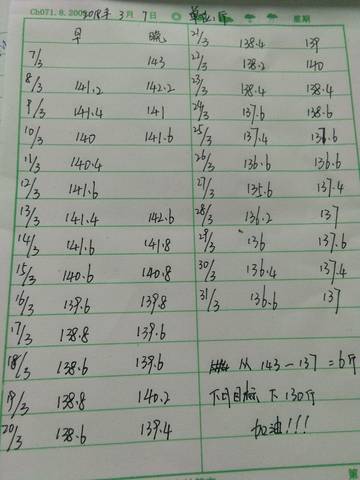 Cb071.8.200 2018年3月7日 单位:斤 星期
早 晚
7/3 143
8/3 141.2 142.2
9/3 141.4 141
10/3 140 141.6
11/3 140.4
12/3 141.6
13/3 141.4 142.6
14/3 141.6 141.8
15/3 140.6 140.8
16/3 139.6 139.8
17/3 138.8 139.6
18/3 138.6 139.6
19/3 138.8 140.2
20/3 138.6 139.4
21/3 138.4 139
22/3 138.2 140
23/3 138.4 138.4
24/3 137.6 138.6
25/3 137.4 136.6
26/3 136.6 136.6
27/3 135.6 137.4
28/3 136.2 137
29/3 136 137.6
30/3 136.4 137.4
31/3 136.6 137
从143-137=6斤
下月目标 下130斤
加油!!!
第